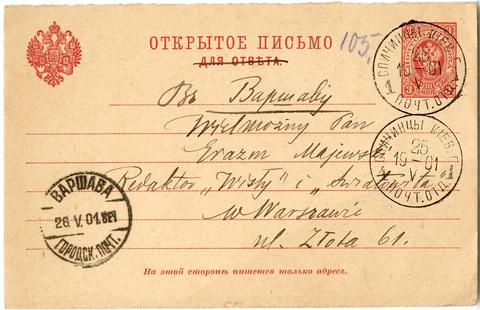 ОТКРЫТОЕ ПИСЬМО
ДЛЯ ОТВѢТА.
105.
СПИЧИНЦЫ КІЕВ. Г.
25
19-01
V
1
ПОЧТ. ОТД.
Въ Варшаву
Wielmożny Pan
Erazm Majewski
Redaktor „Wisły" i „Światowita"
w Warszawie
ul. Złota 61.
СПИЧИНЦЫ КІЕВ. Г.
25
19-01
V
1
ПОЧТ. ОТД.
ВАРШАВА
26.V.01.
ГОРОДСК. ПОЧТ.
На этой сторонѣ пишется только адресъ.